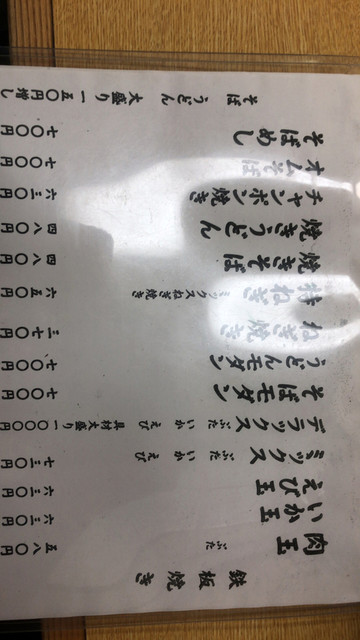 鉄板焼き
肉玉 ぶた 五八〇円
いか玉 六三〇円
えび玉 六三〇円
ミックス ぶた いか えび 七三〇円
デラックス ぶた いか えび 具材大盛り 一〇〇〇円
そばモダン 七〇〇円
うどんモダン 七〇〇円
ねぎ焼き 三七〇円
特ねぎ ミックスねぎ焼き 六五〇円
焼きそば 四八〇円
焼きうどん 四八〇円
チャンポン焼き 六三〇円
オムそば 七〇〇円
そばめし 七〇〇円
そば うどん 大盛り 一五〇円増し